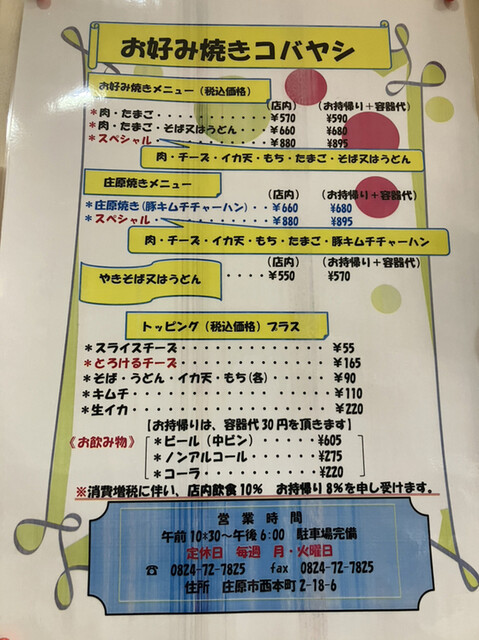 お好み焼きコバヤシ
お好み焼きメニュー（税込価格）
（店内） （お持帰り＋容器代）
＊肉・たまご・・・・・・・・・・・¥570 ¥590
＊肉・たまご・そば又はうどん・・¥660 ¥680
＊スペシャル・・・・・・・・・・・¥880 ¥895
肉・チーズ・イカ天・もち・たまご・そば又はうどん
庄原焼きメニュー
（店内） （お持帰り＋容器代）
＊庄原焼き(豚キムチチャーハン)・・¥660 ¥680
＊スペシャル・・・・・・・・・・・¥880 ¥895
肉・チーズ・イカ天・もち・たまご・豚キムチチャーハン
（店内） （お持帰り＋容器代）
やきそば又はうどん ・・・・・¥550 ¥570
トッピング（税込価格）プラス
＊スライスチーズ・・・・・・・・・・・・・・¥55
＊とろけるチーズ・・・・・・・・・・・・・・¥165
＊そば・うどん・イカ天・もち(各)・・・・・・¥90
＊キムチ・・・・・・・・・・・・・・・・・・¥110
＊生イカ・・・・・・・・・・・・・・・・・・¥220
【お持帰りは、容器代30円を頂きます】
《お飲み物》
＊ビール（中ビン）・・・・¥605
＊ノンアルコール・・・・・¥275
＊コーラ・・・・・・・・・¥220
※消費増税に伴い、店内飲食10％ お持帰り8％を申し受けます。
営業時間
午前10*30～午後6:00 駐車場完備
定休日 毎週 月・火曜日
☎ 0824-72-7825 fax 0824-72-7825
住所 庄原市西本町2-18-6